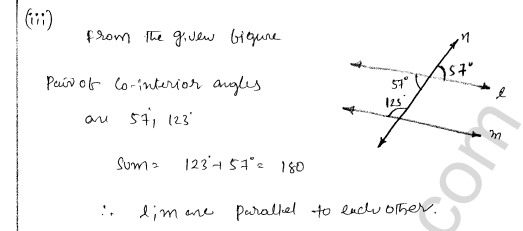 (iii)
From the given figure
Pair of Co-interior angles
are 57°, 123°
Sum = 123° + 57° = 180
∴ l, m are parallel to each other.
n
57°
57°
l
123°
m
com